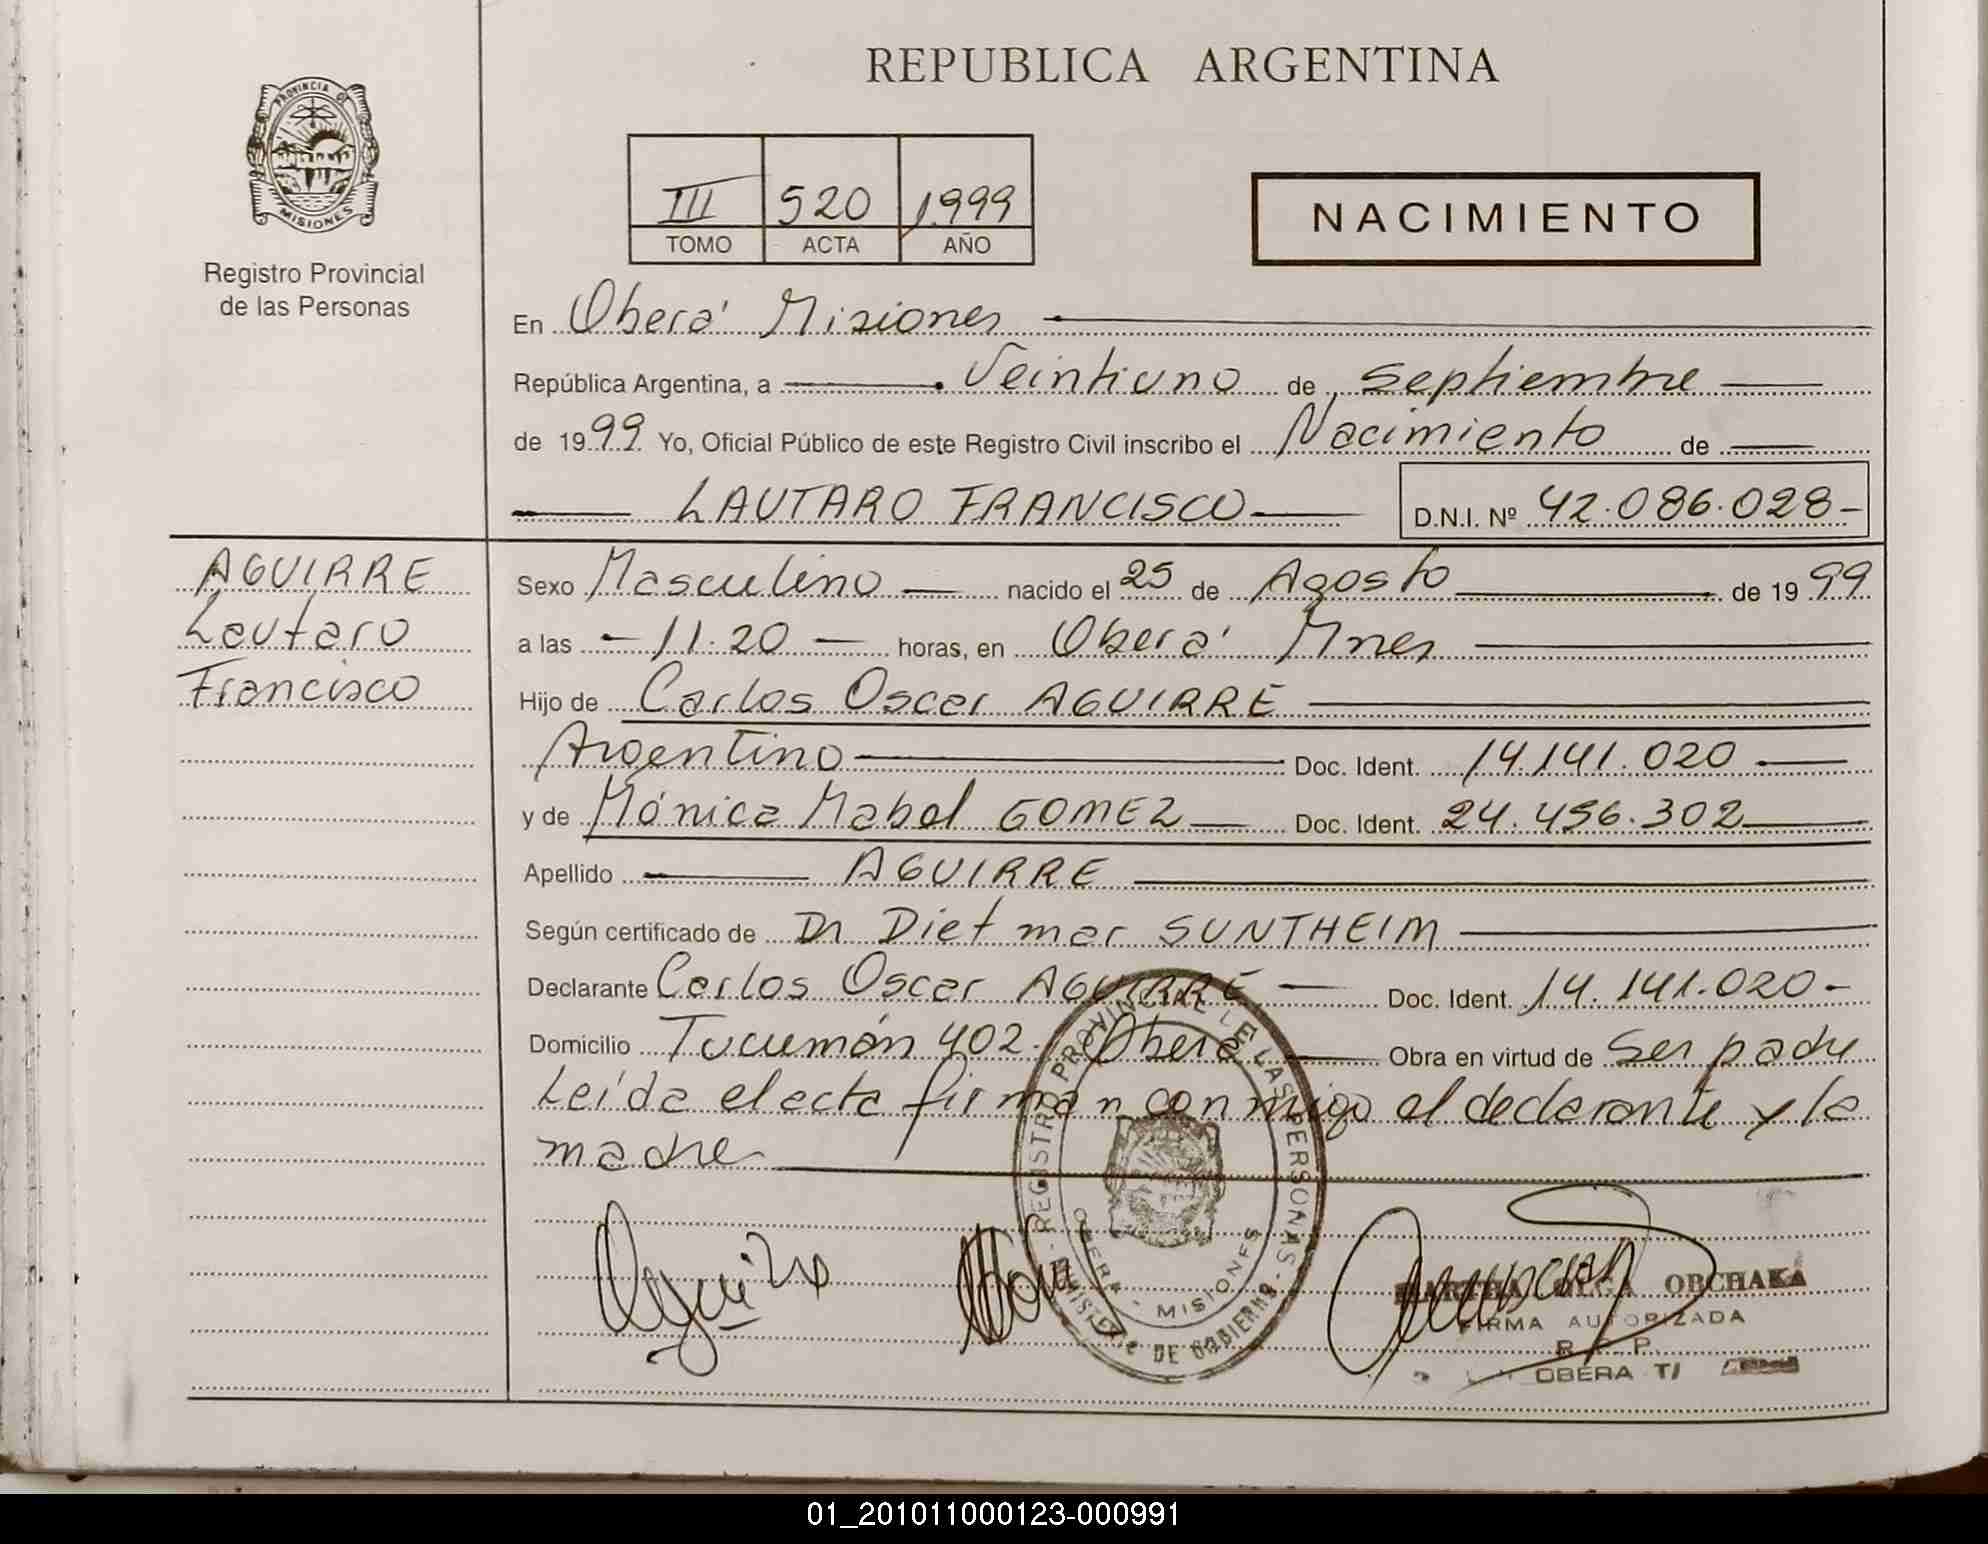 REPUBLICA ARGENTINA
PROVINCIA DE
MISIONES
Registro Provincial
de las Personas
III 520 1999
TOMO ACTA AÑO
NACIMIENTO
En Oberá Misiones
República Argentina, a Veintiuno de Septiembre
de 1999 Yo, Oficial Público de este Registro Civil inscribo el Nacimiento de
LAUTARO FRANCISCO D.N.I. Nº 42.086.028-
AGUIRRE
Lautaro
Francisco
Sexo Masculino nacido el 25 de Agosto de 1999
a las 11.20 horas, en Oberá Mnes
Hijo de Carlos Oscar AGUIRRE
Argentino Doc. Ident. 14.141.020
y de Mónica Mabel GOMEZ Doc. Ident. 24.456.302
Apellido AGUIRRE
Según certificado de Dr Dietmar SUNTHEIM
Declarante Carlos Oscar AGUIRRE Doc. Ident. 14.141.020-
Domicilio Tucumán 402. Oberá Obra en virtud de Ser padre
Leída el acta firman conmigo el declarante y la
madre
REGISTRO PROVINCIAL DE LAS PERSONAS
OBERA - MISIONES
MINISTERIO DE GOBIERNO
MARTHA OLGA OBCHAKA
FIRMA AUTORIZADA
R. P. P.
OBERA
01_201011000123-000991